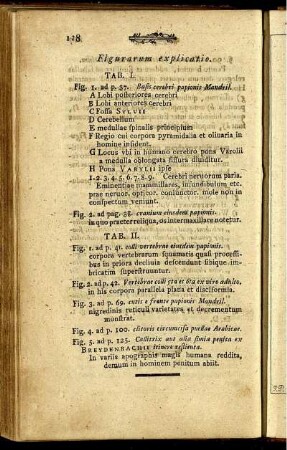 128
Figurarum explicatio.
TAB. I.
Fig. 1. ad p. 37. Basis cerebri papionis Mandril.
A Lobi posteriores cerebri
B Lobi anteriores cerebri
C Fossa SYLVII
D Cerebellum
E medullae spinalis principium
F Regio vbi corpora pyramidalia et oliuaria in
homine insident.
G Locus vbi in humano cerebro pons Varolii
a medulla oblongata fissura diuiditur.
H Pons VAROLII ipse
1. 2. 3. 4. 5. 6. 7. 8. 9. Cerebri neruorum paria.
Eminentiae mammillares, infundibulum etc.
prae neruor. opticor. coniunctor. mole non in
conspectum veniunt.
Fig. 2. ad pag. 38. cranium eiusdem papionis.
in quo praeter reliqua, os intermaxillare notetur.
TAB. II.
Fig. 1. ad p. 41. colli vertebrae eiusdem papionis.
corpora vertebrarum squamatis quasi processibus
in priora decliuia descendunt sibique imbricatim
superstruuntur.
Fig. 2. ad p. 42. Vertebrae colli 5ta et 6ta ex viro adulto.
in his corpora parallela plana et disciformia.
Fig. 3. ad p. 69. cutis e fronte papionis Mandril.
nigredinis reticuli varietates et decrementum
monstrat.
Fig. 4. ad p. 100. clitoris circumcisa puellae Arabicae.
Fig. 5. ad p. 125. Cercopithecus
BREYDENBACHII
In variis apographis magis humana reddita,
demum in hominem penitus abiit.